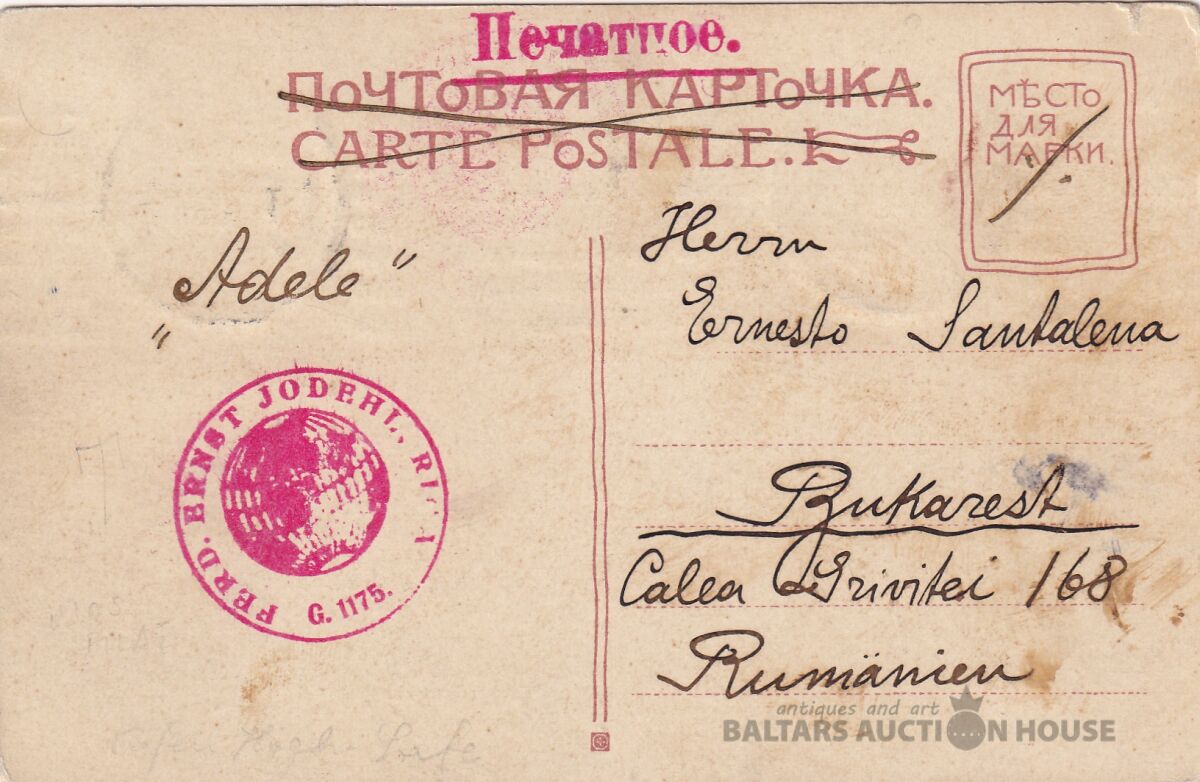 Печатное.
ПОЧТОВАЯ КАРТОЧКА.
CARTE POSTALE.
МѢСТО
ДЛЯ
МАРКИ.
Herrn
"Adele"
Ernesto Santalena
FERD. ERNST JODEHL,
G. 1175.
Bukarest
Calea Grivitei 168
Rumänien
antiques and art
BALTARS AUCTION HOUSE